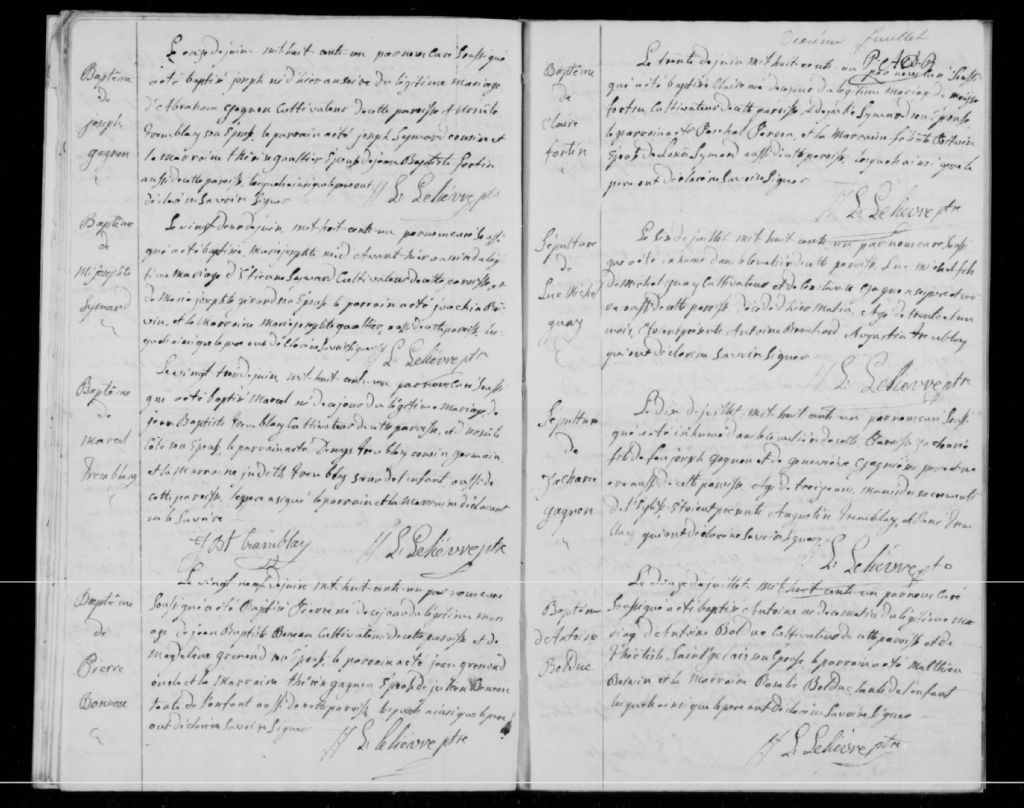 Baptême
de
joseph
gagnon
Le onze de juin mil huit cent un par nous curé soussigné
a été baptisé joseph né d'hier au soir du légitime mariage
d'Abraham Gagnon Cultivateur de cette paroisse et
Tremblay son Epouse le parrain a été joseph Symard cousin et
la marraine thérèse gauthier Epouse de jean Baptiste fortin
aussi de cette paroisse lesquels ainsi que le pere ont
déclaré ne savoir signer
L. Lelièvre ptre
Baptême
de
M: josephte
Symard
Le vingt de juin, mil huit cent un par nous curé soussi-
gné a été baptisée marie josephte née d'avant hier du légi-
time mariage d'Etienne Symard Cultivateur de cette paroisse, et
de Marie josephte girard son Epouse le parrain a été joachin Boi-
vin, et la marraine Marie josephte gauthier aussi de cette paroisse les-
quels ainsi que le pere ont déclaré ne savoir signer
L. Lelièvre ptre
Baptême
de
marcel
tremblay
Le vingt trois de juin, mil huit cent un par nous curé soussi-
gné a été baptisé Marcel né de ce jour du légitime Mariage de
jean Baptiste tremblay Cultivateur de cette paroisse, et d'
Côté son Epouse, le parrain a été Denys tremblay cousin germain
et la Marraine judith tremblay de l'enfant aussi de
cette paroisse, le pere a signé le parrain et la Marraine déclarant
ne le savoir
J Bt tramblay L. Lelièvre ptre
Baptême
de
Pierre
Boneau
Le vingt neuf de juin mil huit cent un par nous curé
soussigné a été Baptisé Pierre né de ce jour du légitime mari-
age de jean Baptiste Boneau Cultivateur de cette paroisse et de
Magdeleine grenond son Epouse le parrain a été jean grenond
oncle et la Marraine thérèse gagnon Epouse de Boneau
tante de l'enfant aussi de cette paroisse lesquels ainsi que le pere
ont déclaré ne savoir signer
L. Lelièvre ptre
Dixième feuillet
P: A: D B
Baptême
de
Claire
fortin
Le trente de juin mil huit cent un par nous curé soussi-
gné a été baptisée Claire née de ce jour du légitime mariage de
fortin Cultivateur de cette paroisse, et de Symard son Epouse
le parrain a été Paschal Perron, et la Marraine
Epouse de Louis Symard aussi de cette paroisse, lesquels ainsi que le
pere ont déclaré ne savoir signer
L. Lelièvre ptre
Sépulture
de
Luc Michel
guay
Le six de juillet, mil huit cent un par nous curé soussi-
gné a été inhumé dans le cimetière de cette paroisse, Luc michel fils
de michel guay Cultivateur et de Gagnon ses pere et me-
re aussi de cette paroisse, décédé d'hier matin, Agé de trente et un
mois, étoient présents Antoine Bouchard Augustin tremblay
qui ont déclaré ne savoir signer
L. Lelièvre ptre
Sépulture
de
Zacharie
gagnon
Le dix de juillet mil huit cent un par nous curé soussi-
gné a été inhumé dans le cimetière de cette Paroisse Zacharie
fils de feu joseph Gagnon et de geneviève ses pere et me-
re aussi de cette paroisse, Agé de treize ans, muni des sacrements
de l'Eglise étoient présents Augustin tremblay, et René trem-
blay qui ont déclaré ne savoir signer
L. Lelièvre ptre
Baptême
d'Antoine
Bolduc
Le de juillet, mil huit cent un par nous curé
soussigné a été baptisé Antoine né de ce matin du légitime ma-
riage d'Antoine Bolduc Cultivateur de cette paroisse et de
Saint gelais son Epouse le parrain a été Matthieu
Boivin et la Marraine Rosalie Bolduc tante de l'enfant
lesquels ainsi que le pere ont déclaré ne savoir signer
L. Lelièvre ptre